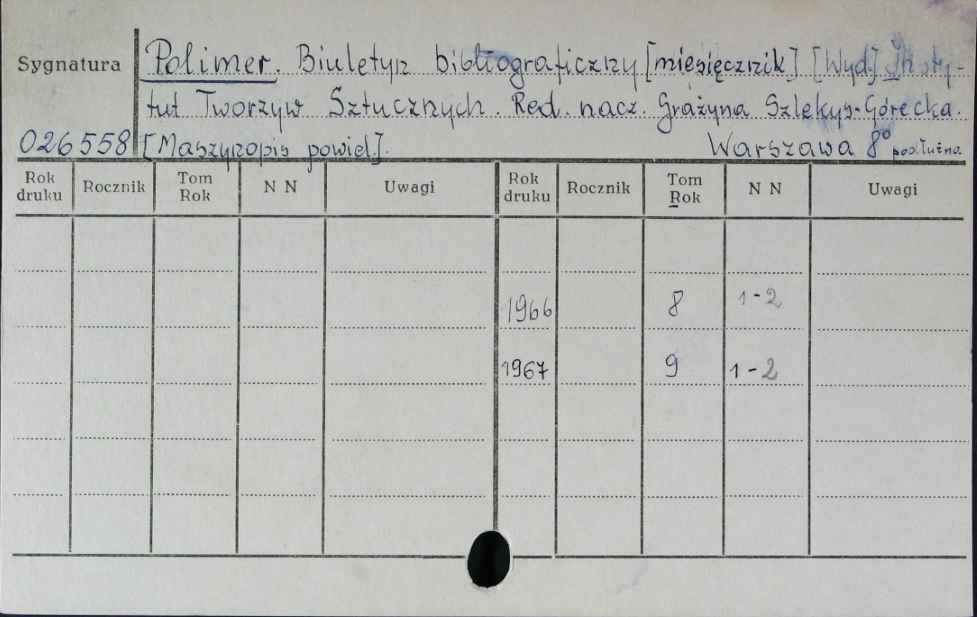 Sygnatura
Polimer. Biuletyn bibliograficzny [miesięcznik] [Wyd.] Insty-
tut Tworzyw Sztucznych. Red. nacz. Grażyna Szlekys-Górecka.
026558 [Maszynopis powiel]. Warszawa 8° podłużna
Rok druku Rocznik Tom Rok N N Uwagi Rok druku Rocznik Tom Rok N N Uwagi
1966 8 1-2
1967 9 1-2